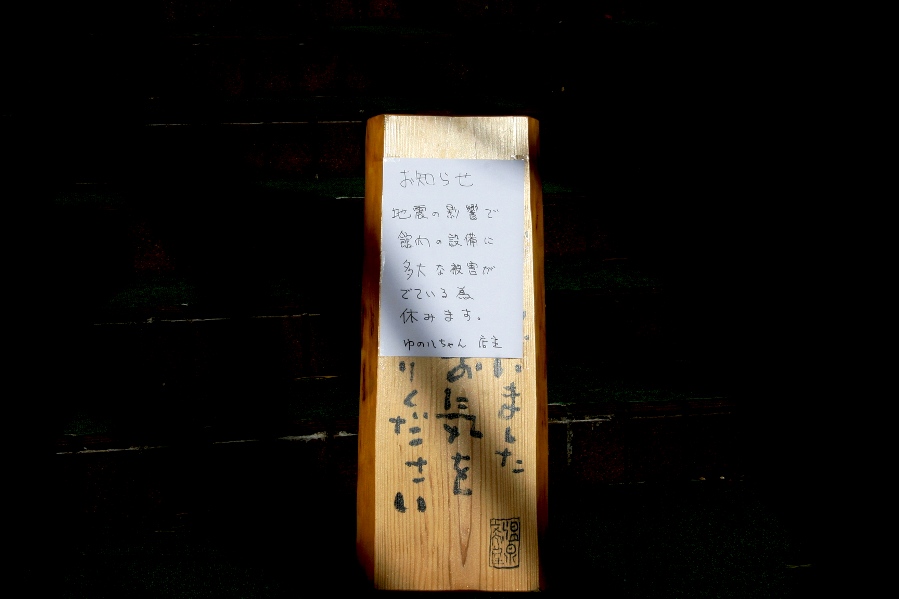 お知らせ
地震の影響で
館内の設備に
多大な被害が
でている為
休みます。
ゆの八ちゃん 店主
いました
お気を
りください
温泉